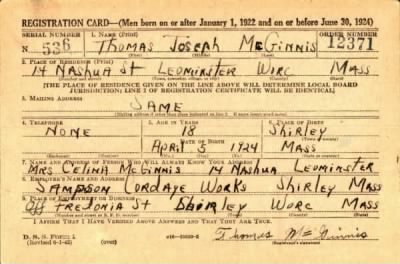 REGISTRATION CARD—(Men born on or after January 1, 1922 and on or before June 30, 1924)
SERIAL NUMBER 1. NAME (Print) ORDER NUMBER
N 536 THOMAS JOSEPH McGINNIS 12371
2. PLACE OF RESIDENCE (Print)
14 NASHUA ST LEOMINSTER WORC MASS
[THE PLACE OF RESIDENCE GIVEN ON THE LINE ABOVE WILL DETERMINE LOCAL BOARD
JURISDICTION; LINE 2 OF REGISTRATION CERTIFICATE WILL BE IDENTICAL]
3. MAILING ADDRESS
SAME
4. TELEPHONE 5. AGE IN YEARS 6. PLACE OF BIRTH
NONE 18 SHIRLEY
DATE OF BIRTH
APRIL 5 1924 MASS
7. NAME AND ADDRESS OF PERSON WHO WILL ALWAYS KNOW YOUR ADDRESS
MRS CELINA McGINNIS 14 NASHUA LEOMINSTER
8. EMPLOYER'S NAME AND ADDRESS
SAMPSON CORDAGE WORKS SHIRLEY MASS
9. PLACE OF EMPLOYMENT OR BUSINESS
Off FREDONIA ST SHIRLEY WORC MASS
I AFFIRM THAT I HAVE VERIFIED ABOVE ANSWERS AND THAT THEY ARE TRUE.
D. S. S. Form 1
(Revised 6-1-42) (over)
Thomas McGinnis
(Registrant's signature)